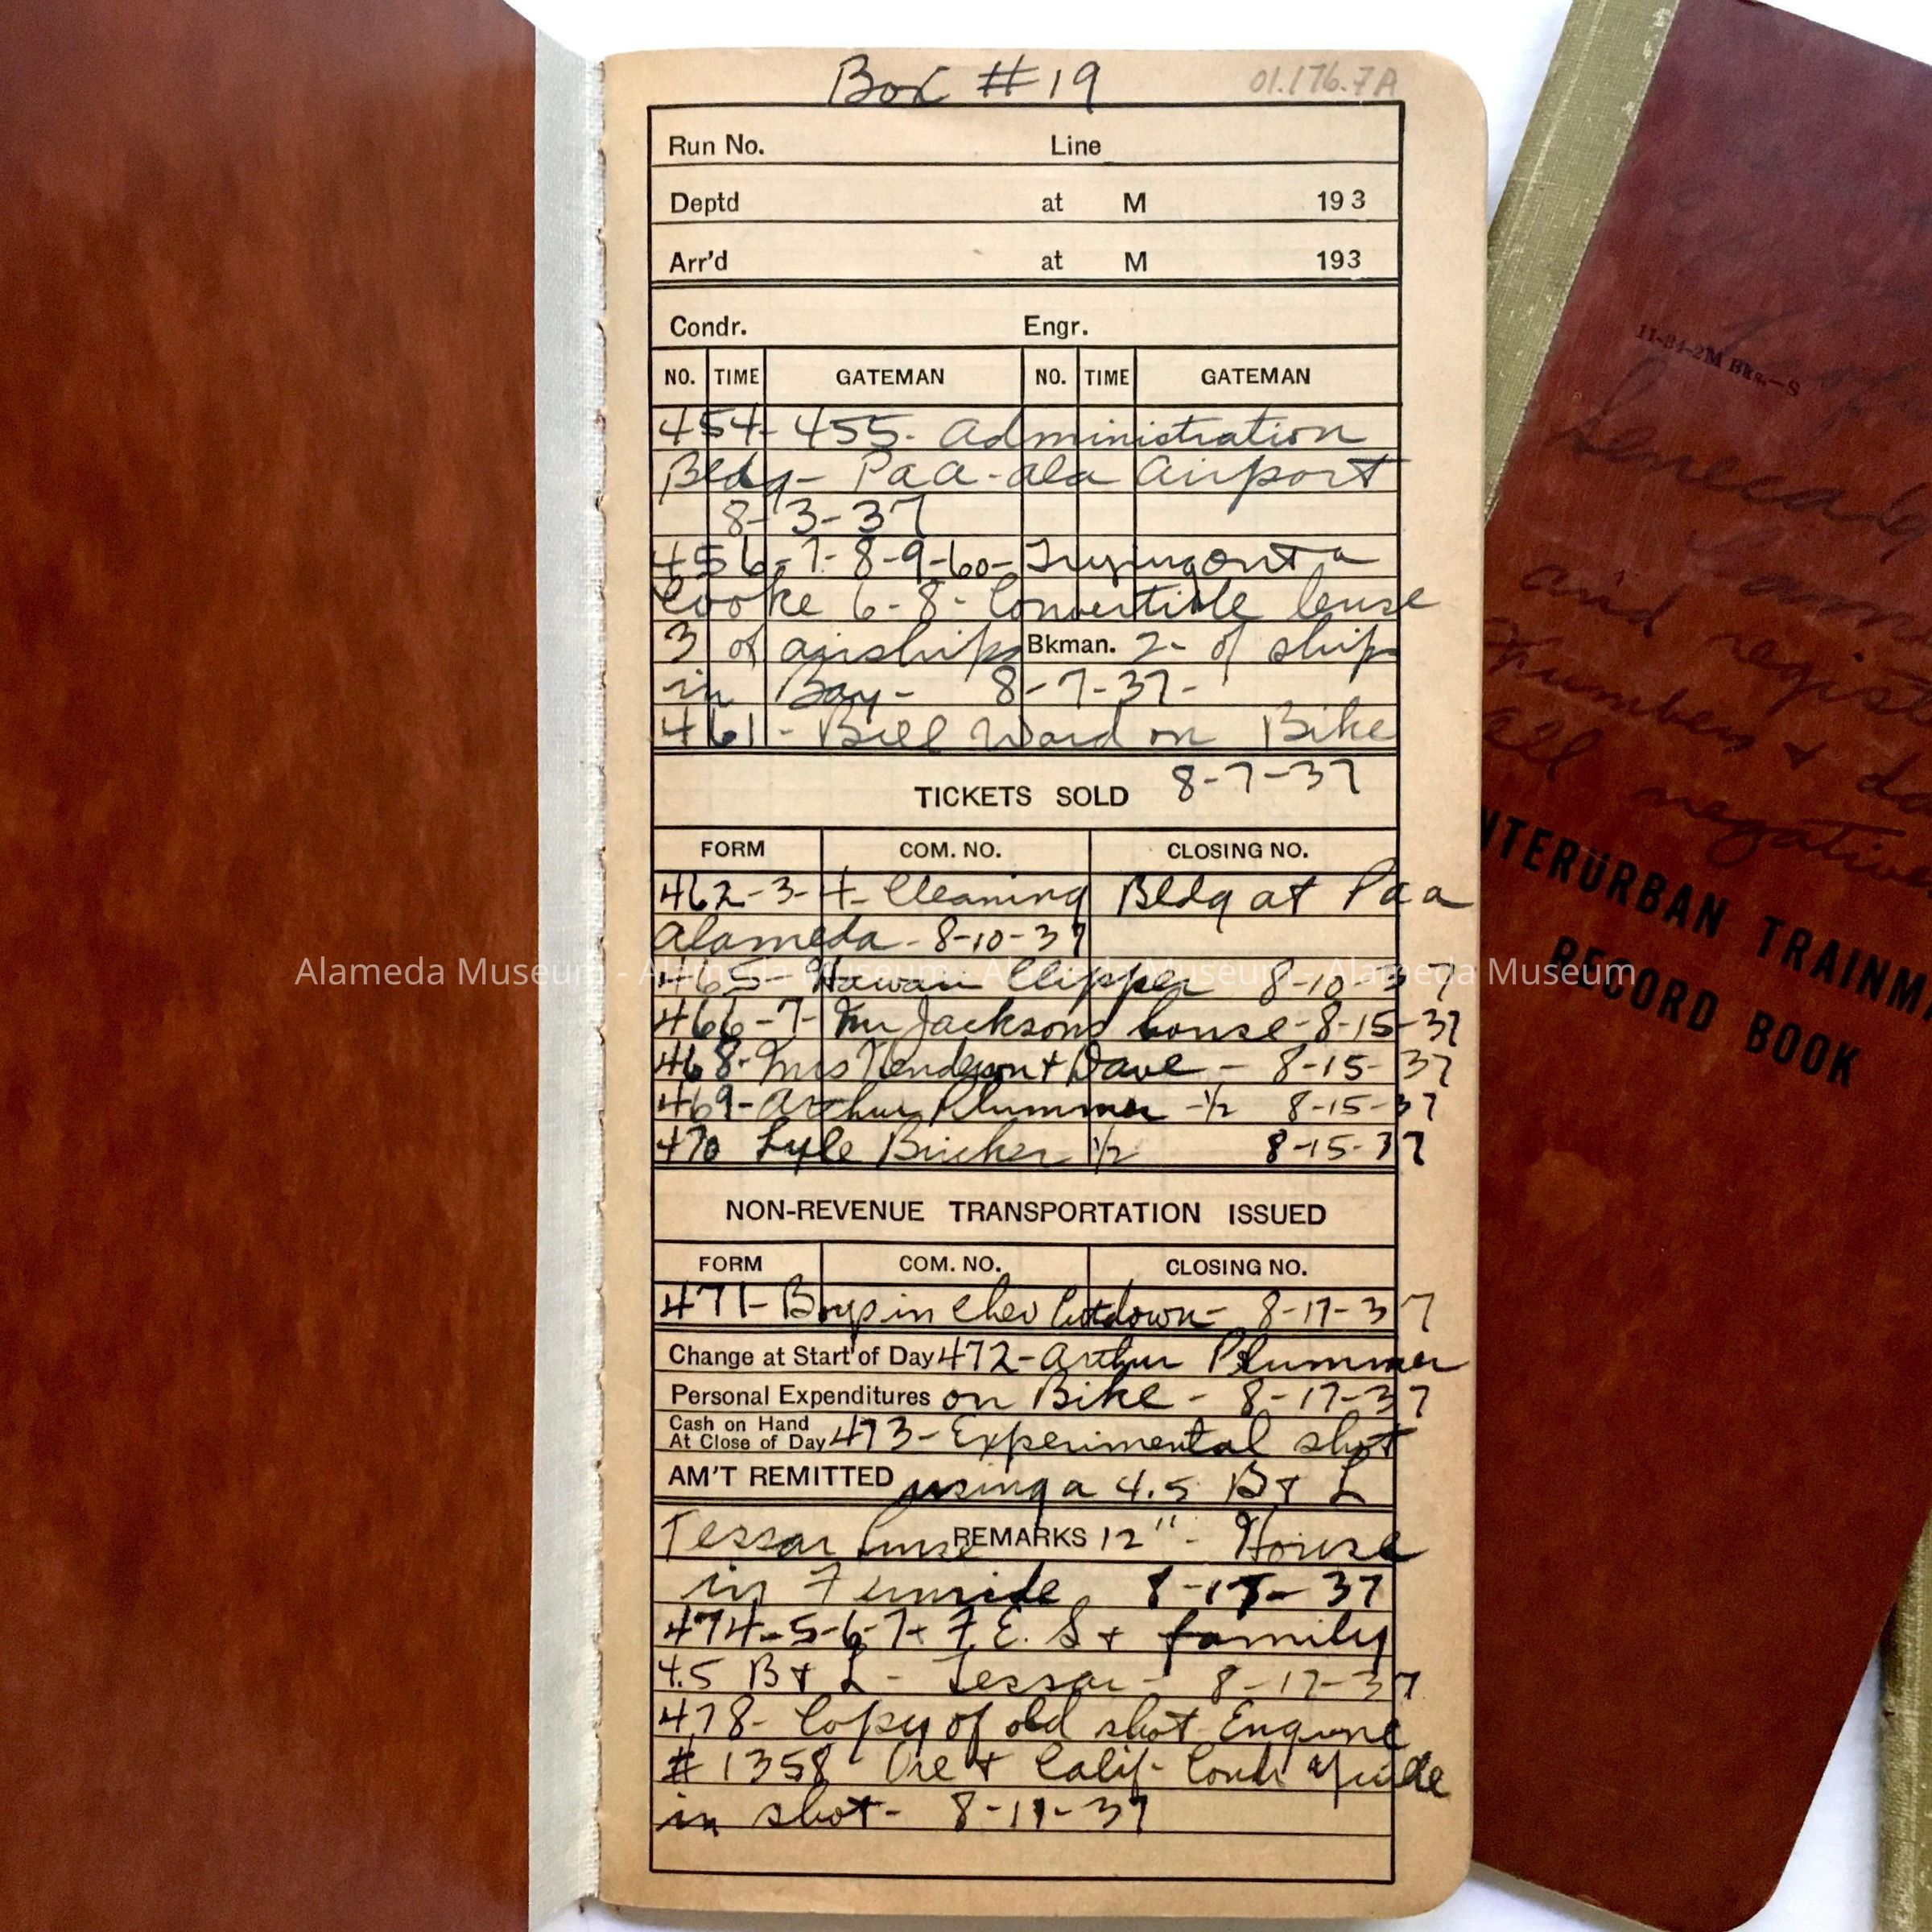 Box #19
01.176.7A
Run No. Line
Deptd at M 193
Arr'd at M 193
Condr. Engr.
NO. TIME GATEMAN NO. TIME GATEMAN
454-455- Administration
Bldg- PaA-ala Airport
8-3-37
456-7-8-9-60- Trying out a
Cooke 6-8- Convertible lense
3 of airships Bkman. 2- of ship
in Bay- 8-7-37-
461- Bill Ward on Bike
8-7-37
TICKETS SOLD
FORM COM. NO. CLOSING NO.
462-3-4- Cleaning Bldg at Paa
Alameda- 8-10-37
465 Hawaii Clipper 8-10-37
466-7- Mr Jacksons house-8-15-37
468- Mrs Henderson + Dave - 8-15-37
469- Arthur Plummer -1/2 8-15-37
470 Lyle 1/2 8-15-37
NON-REVENUE TRANSPORTATION ISSUED
FORM COM. NO. CLOSING NO.
471- Boys in Chev Cutdown- 8-17-37
Change at Start of Day 472-Arthur Plummer
Personal Expenditures on Bike - 8-17-37
Cash on Hand
At Close of Day 473- Experimental shot
AM'T REMITTED using a 4.5 B & L
Tessar Lense REMARKS 12" - House
in Fernside 8-17-37
474-5-6-7- F.E. S + family
4.5 B & L - Tessar - 8-17-37
478- Copy of old shot Engine
#1358 Ore & Calif-
in shot- 8-17-37
11-34-2M Bks.-S
and
numbers +
all negative
INTERURBAN TRAINM
RECORD BOOK
Alameda Museum - Alameda Museum - Alameda Museum - Alameda Museum